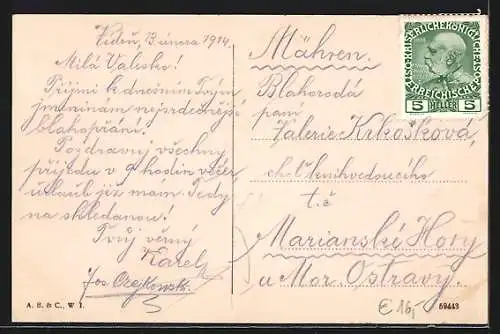 Vídeň, 13. února 1914.
Milá Valesko!
Přijmi k dnešním Tvým
jmeninám nejsrdečnější
blahopřání!
Pozdravuj všechny
přijedu v 9 hodin večer
urlaub již mám. Tedy
na shledanou!
Tvůj věrný
Karel
Jos
A. B. & C., W. I.
Mähren.
Blahorodá
paní
Valerie Krkošková,
chot
t. č.
Marianské Hory
u Mor. Ostravy.
KAISERLICHEKÖNIGLICHE
ÖSTERREICHISCHE
5 HELLER 5
€ 16,-
59443